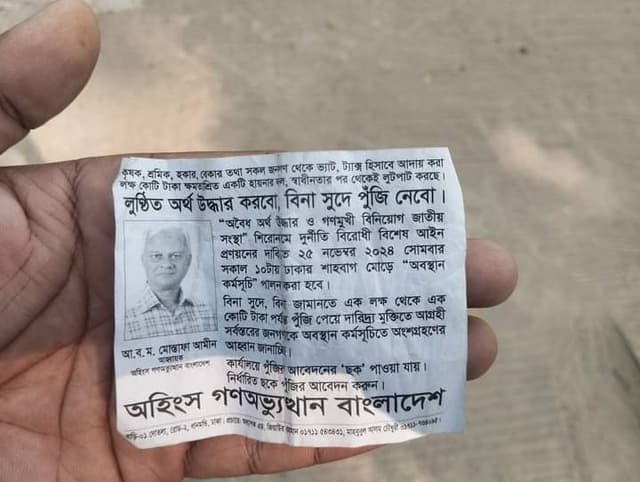 কৃষক, শ্রমিক, হকার, বেকার তথা সকল জনগণ থেকে ভ্যাট, ট্যাক্স হিসাবে আদায় করা
লক্ষ কোটি টাকা ক্ষমতাশ্রিত একটি হায়নার দল, স্বাধীনতার পর থেকেই লুটপাট করছে।
লুণ্ঠিত অর্থ উদ্ধার করবো, বিনা সুদে পুঁজি নেবো।
“অবৈধ অর্থ উদ্ধার ও গণমুখী বিনিয়োগ জাতীয়
সংস্থা” শিরোনমে দুর্নীতি বিরোধী বিশেষ আইন
প্রণয়নের দাবিত ২৫ নভেম্বর ২০২৪ সোমবার
সকাল ১০টায় ঢাকার শাহবাগ মোড়ে “অবস্থান
কর্মসূচি” পালন করা হবে।
বিনা সুদে, বিনা জামানতে এক লক্ষ থেকে এক
কোটি টাকা পর্যন্ত পুঁজি পেয়ে দারিদ্র্য মুক্তিতে আগ্রহী
সর্বস্তরের জনগণকে অবস্থান কর্মসূচিতে অংশগ্রহণের
আহ্বান জানাচ্ছি।
কার্যালয়ে পুঁজির আবেদনের ‘ছক’ পাওয়া যায়।
নির্ধারিত ছকে পুঁজির আবেদন করুন।
আ.ব.ম. মোস্তাফা আমীন
আহ্বায়ক
অহিংস গণঅভ্যুত্থান বাংলাদেশ
অহিংস গণঅভ্যুত্থান বাংলাদেশ
বাড়ি-০১ দোতলা, রোড-২, ধানমন্ডি, ঢাকা। প্রচারে: জিয়াউর রহমান ০১৭১১ ৫৪৩৪৩১, মাহবুবুল আলম চৌধুরী